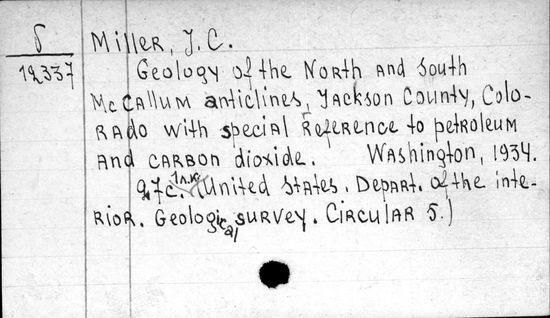 Б
12337
Miller, J.C.
Geology of the North and South
McCallum anticlines, Jackson County, Colo-
rado with special reference to petroleum
and carbon dioxide. Washington, 1934.
1 л.к.
27 c. (United States. Depart. of the inte-
rior. Geological survey. Circular 5.)